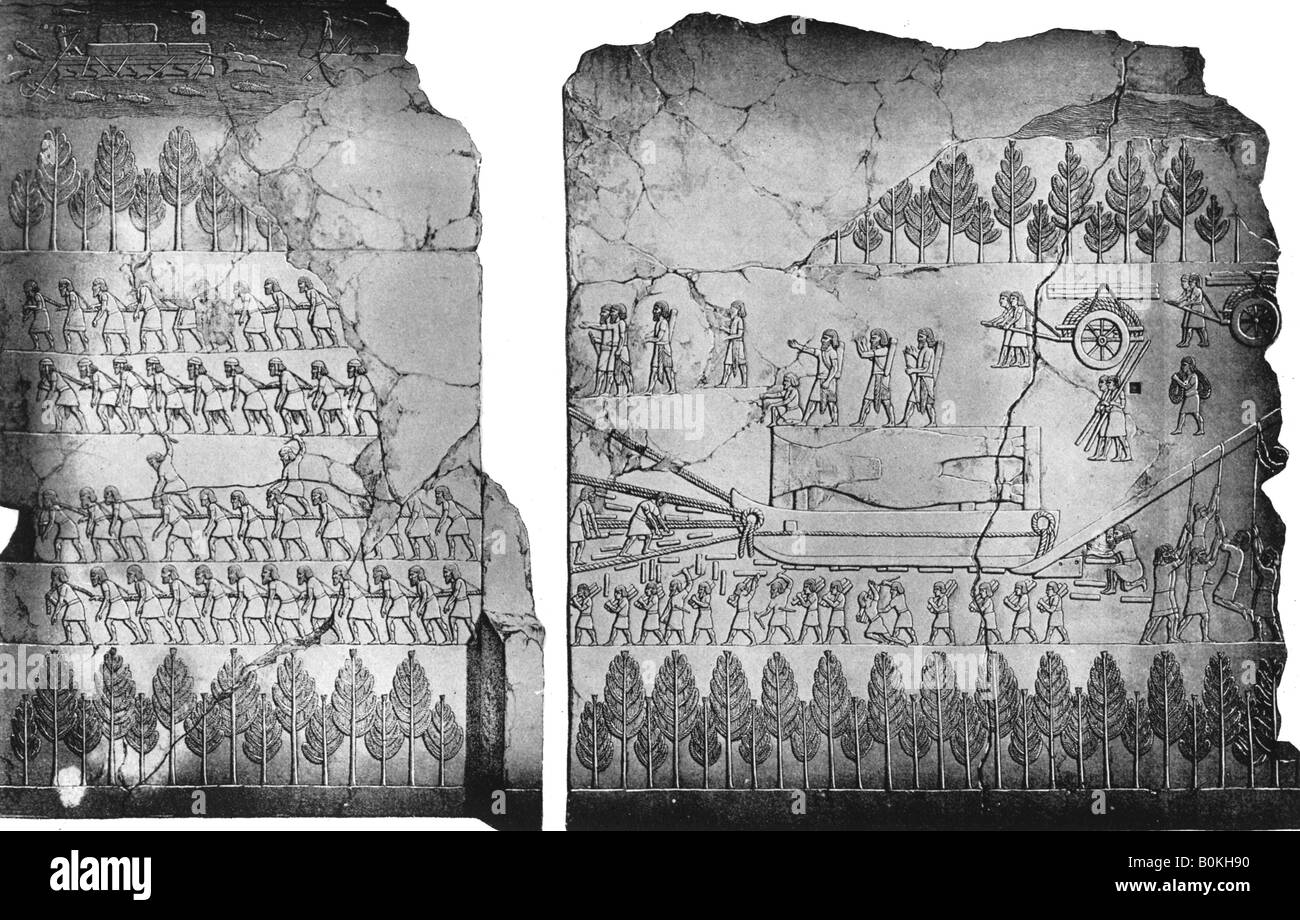 alamy
Image ID: B0KH90
www.alamy.com